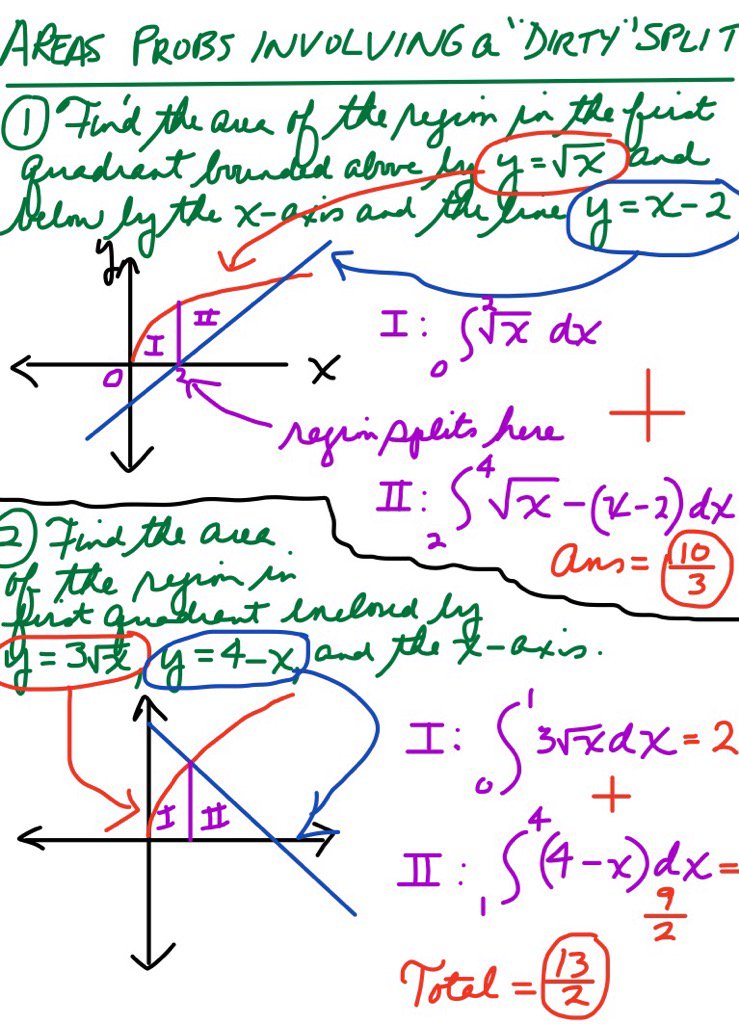 AREAS PROBS INVOLVING a "DIRTY" SPLIT
① Find the area of the region in the first
quadrant bounded above by y = √x and
below by the x-axis and the line y = x - 2
y
I
II
0
2
x
I: ∫₀² √x dx
+
region splits here
II: ∫₂⁴ √x - (x-2) dx
Ans = 10/3
② Find the area
of the region in
first quadrant enclosed by
y = 3√x, y = 4-x, and the x-axis.
I
II
I: ∫₀¹ 3√x dx = 2
+
II: ∫₁⁴ (4-x) dx =
9/2
Total = 13/2